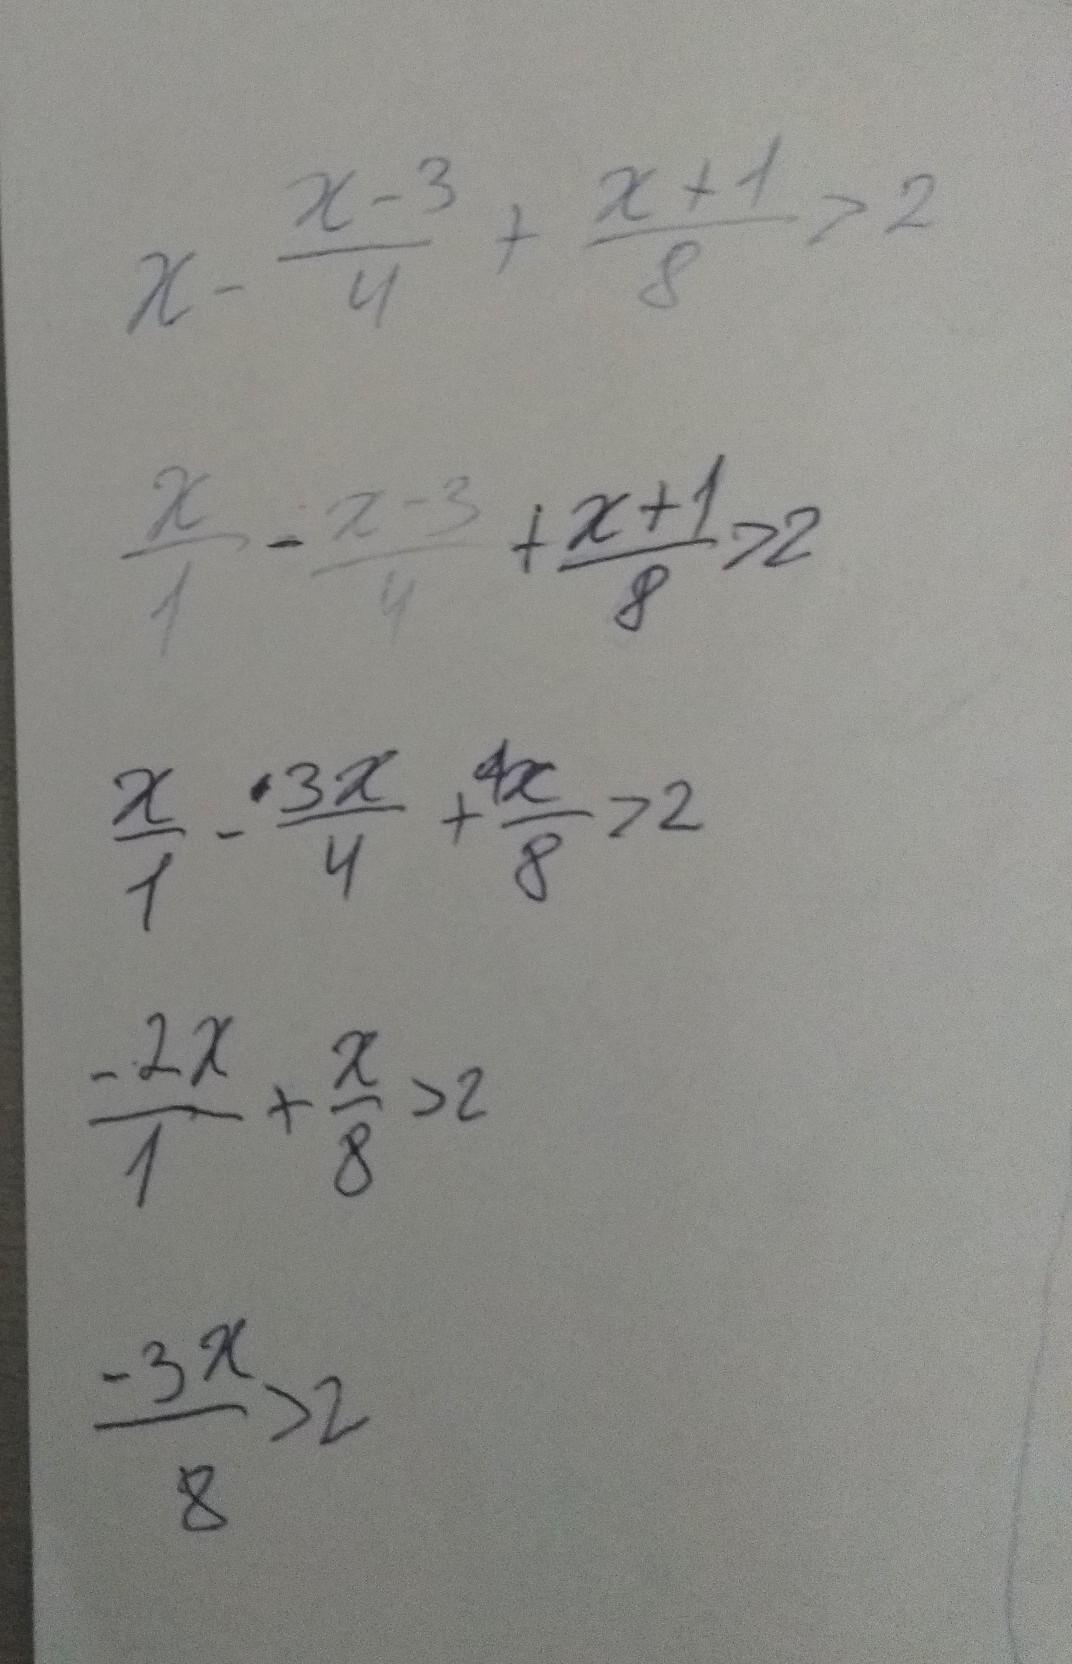 x - \frac{x-3}{4} + \frac{x+1}{8} > 2
\frac{x}{1} - \frac{x-3}{4} + \frac{x+1}{8} > 2
\frac{x}{1} - \frac{3x}{4} + \frac{1x}{8} > 2
\frac{-2x}{1} + \frac{x}{8} > 2
\frac{-3x}{8} > 2